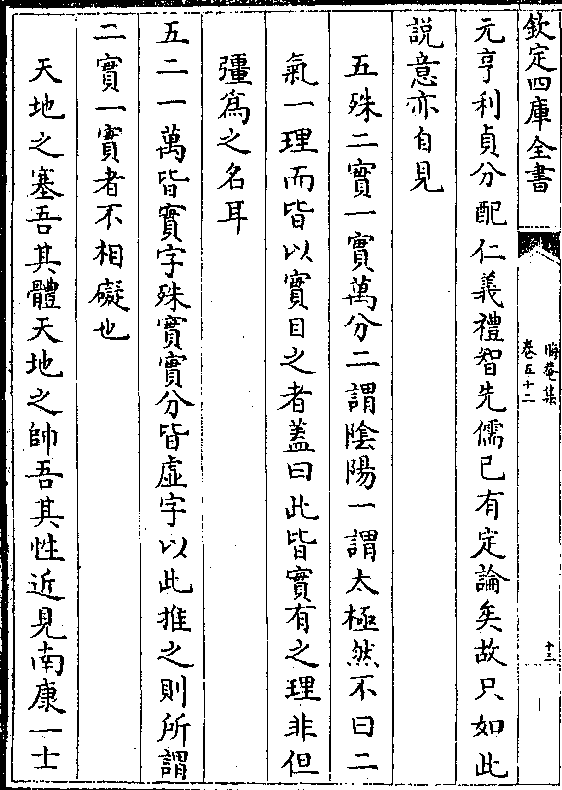 欽定四庫全書
晦菴集
卷五十二
十三
元亨利貞分配仁義禮智先儒已有定論矣故只如此
說意亦自見
五殊二實一實萬分二謂陰陽一謂太極然不曰二
氣一理而皆以實目之者蓋曰此皆實有之理非但
彊爲之名耳
五二一萬皆實字殊實實分皆虛字以此推之則所謂
二實一實者不相礙也
天地之塞吾其體天地之帥吾其性近見南康一士